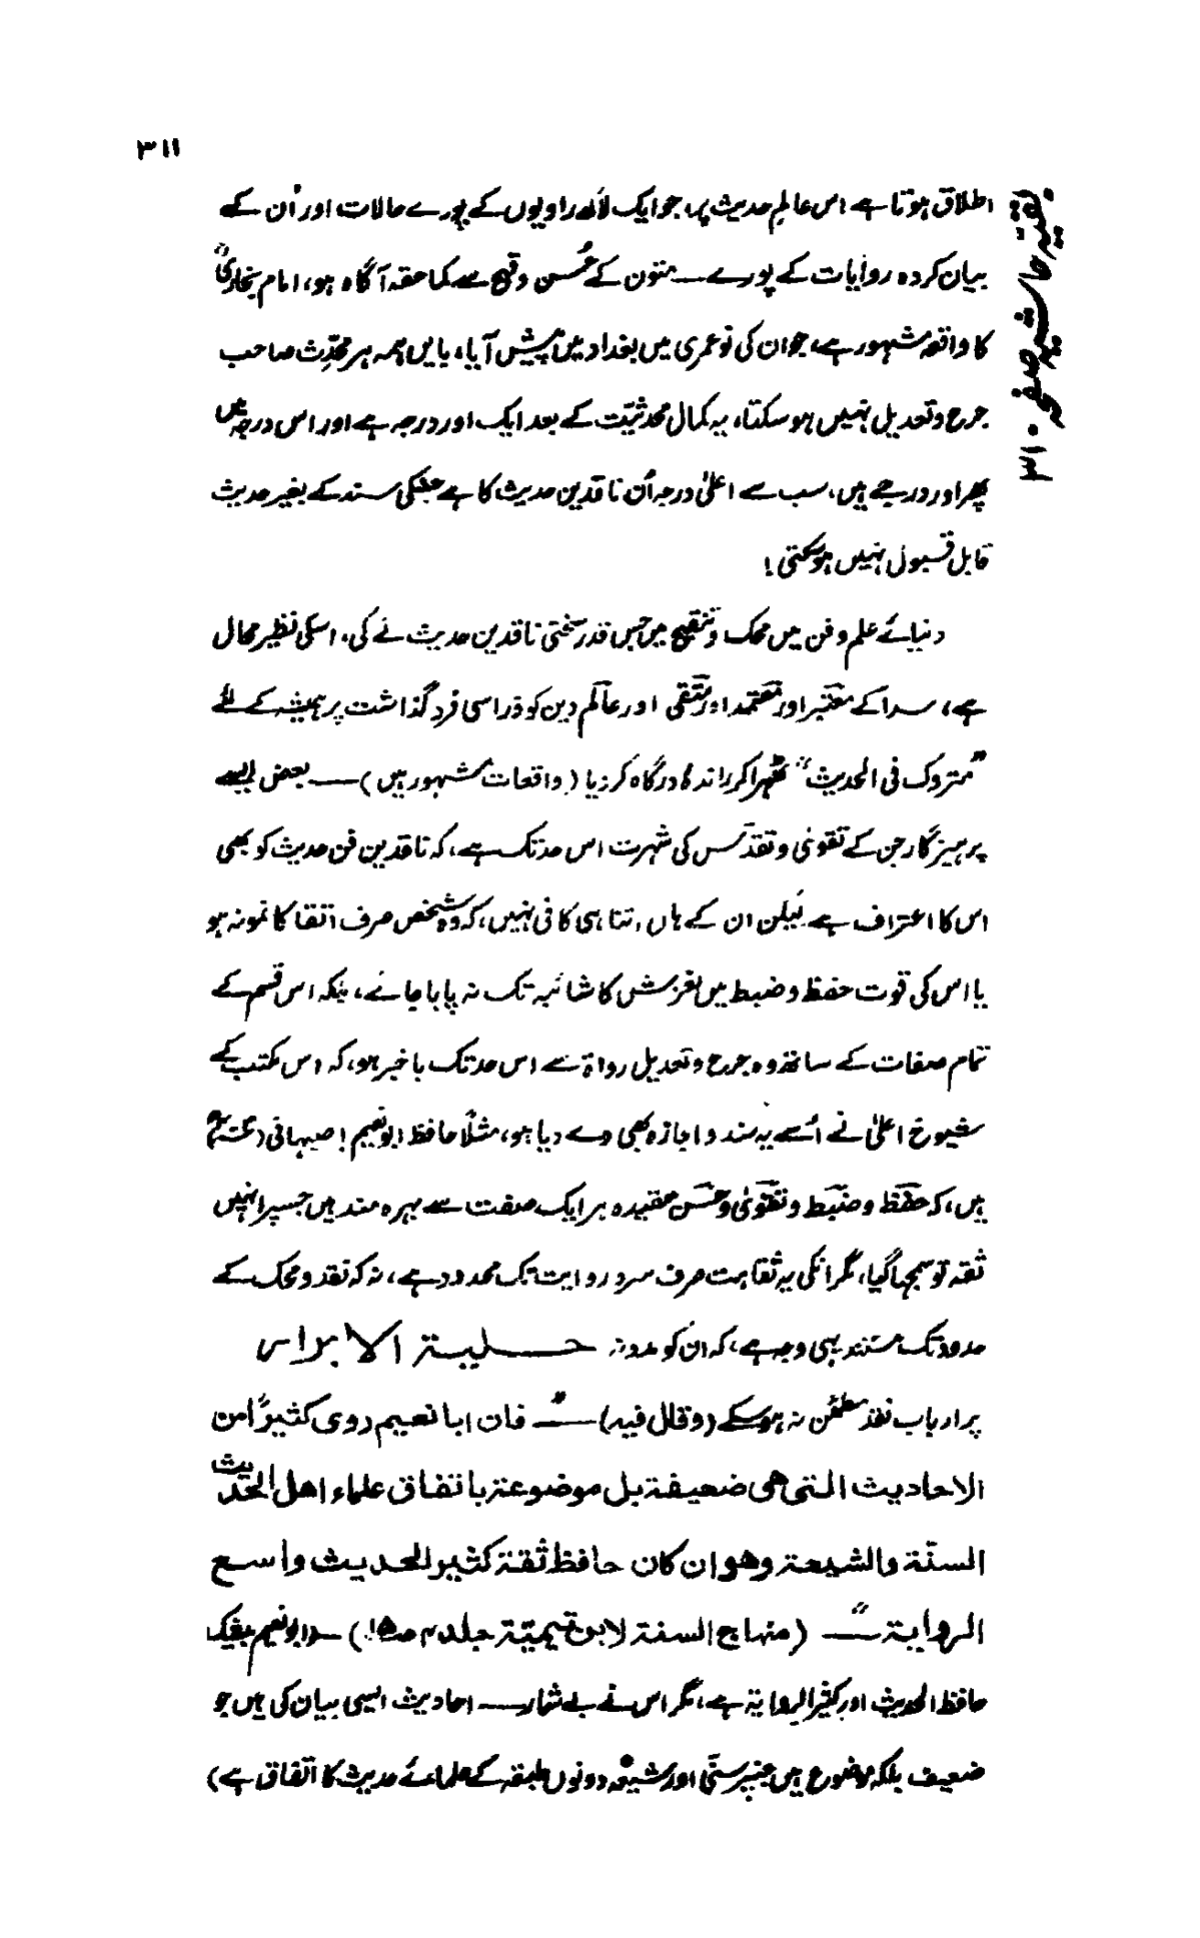 ۳۱۱
بقیہ حاشیہ صفحہ ۳۱۰
اطلاق ہوتا ہے اس عالمِ حدیث پر، جو ایک لاکھ راویوں کے پورے حالات اور اُن کے
بیان کردہ روایات کے پورے ــ متون کے حُسن و قبح سے کما حقہ آگاہ ہو، امام بخاریؒ
کا واقعہ مشہور ہے، جو ان کی نو عمری میں بغداد میں پیش آیا، بایں ہمہ ہر محدِّث صاحب
جرح و تعدیل نہیں ہو سکتا، یہ کمال محدثیّت کے بعد ایک اور درجہ ہے اور اس درجہ میں
پھر اور درجے ہیں، سب سے اعلیٰ درجہ اُن ناقدین حدیث کا ہے جنکی سند کے بغیر حدیث
قابل قسبول نہیں ہو سکتی !
دنیائے علم و فن میں محک و تنقیح میں جس قدر سختی ناقدین حدیث نے کی، اسکی نظیر محال
ہے، سدا کے معتبر اور معتمد اور متقی اور عالم دین کو ذرا سی فرد گذاشت پر ہمیشہ کے لئے
”متروک فی الحدیث“ ٹھہرا کر راندۂ درگاہ کر دیا (واقعات مشہور ہیں) ــ بعض ایسے
پرہیزگار جن کے تقویٰ و تقدّس کی شہرت اس حد تک ہے، کہ ناقدین فن حدیث کو بھی
اس کا اعتراف ہے لیکن ان کے ہاں اتنا ہی کافی نہیں، کہ وہ شخص صرف اتقا کا نمونہ ہو
یا اس کی قوت حفظ و ضبط میں لغزش کا شائبہ تک نہ پایا جائے، بلکہ اس قسم کے
تمام صفات کے ساتھ وہ جرح و تعدیل رواۃ سے اس حد تک باخبر ہو، کہ اس مکتب کے
شیوخ اعلیٰ نے اُسے یہ سند و اجازہ بھی دے دیا ہو، مثلاً حافظ ابو نعیم اصبہانی
ہیں، کہ حفظ و ضبط و تقویٰ و حسن عقیدہ ہر ایک صفت سے بہرہ مند ہیں جسپر انہیں
ثقہ تو سمجہا گیا، مگر انکی یہ ثقاہت صرف سرد روایت تک محدود ہے، نہ کہ نقد و محک کے
حدود تک مستند یہی وجہ ہے، کہ ان کو مدونہ حــلیۃ الابرار
پر ارباب نقد مطمئن نہ ہو سکے (وقال فیہ) ــ” فان ابا نعیم روی کثیرًا من
الاحادیث التی ھی ضعیفۃ بل موضوعۃ باتفاق علماء اھل الحدیث
السنّۃ والشیعۃ وھو ان کان حافظ ثقۃ کثیر الحدیث واسع
الروایۃ“ــ (منہاج السنۃ لابن تیمیّۃ جلد ۴ ص۱۵) ــ (ابو نعیم بیشک
حافظ الحدیث اور کثیر الروایۃ ہے، مگر اس نے بے شمار ــ احادیث ایسی بیان کی ہیں جو
ضعیف بلکہ موضوع ہیں جنپر سنّی اور شیعہ دونوں طبقہ کے علمائے حدیث کا اتفاق ہے)